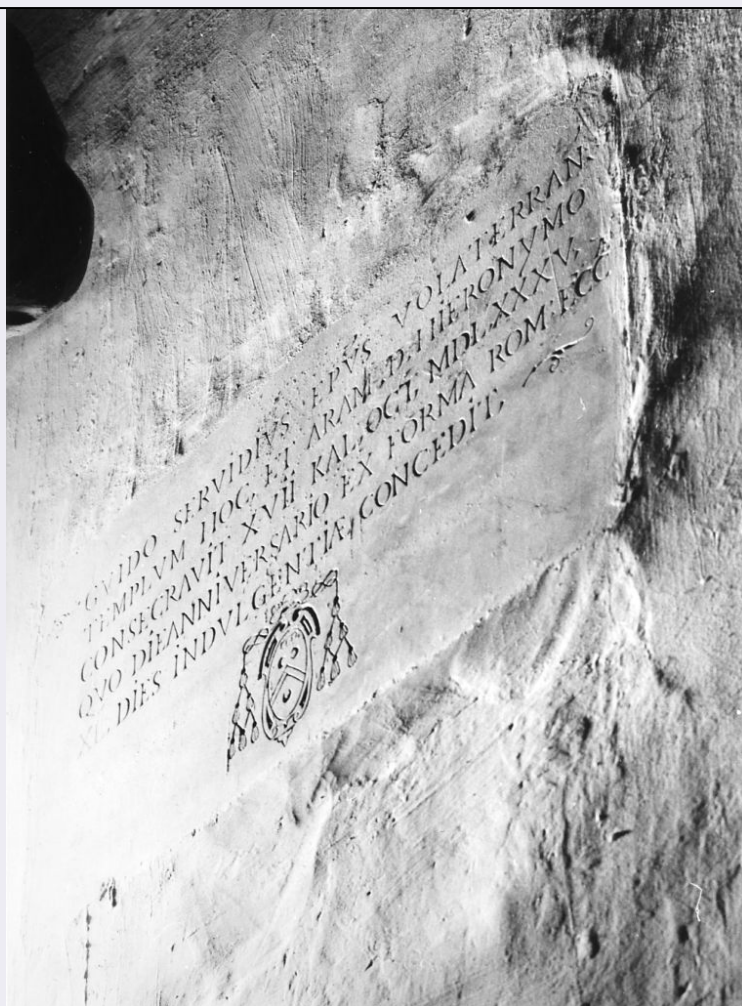 GVIDO SERVIDIVS EPVS VOLATERRAN.
TEMPLVM HOC, ET ARAM, D. HIERONYMO
CONSECRAVIT XVII KAL, OCT, MDLXXXXV,
QVO DIE ANNIVERSARIO EX FORMA ROM: ECC
XL, DIES INDVLGENTIÆ, CONCEDIT,